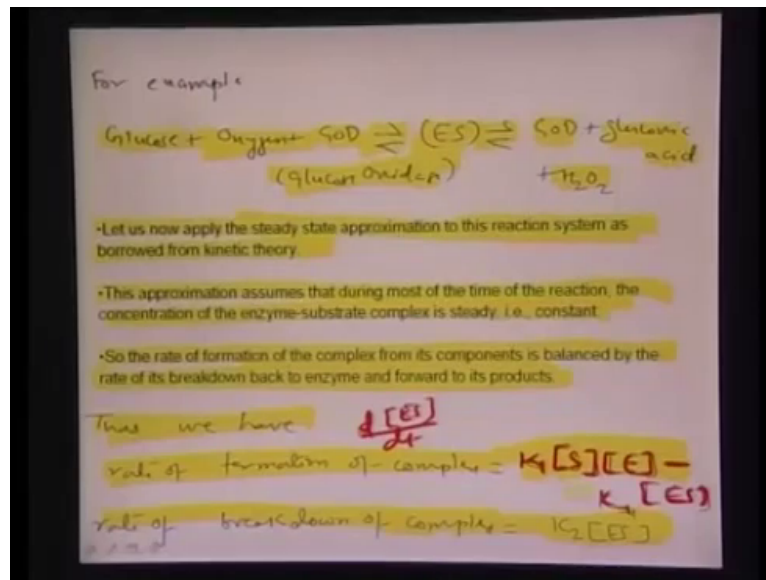 For example
Glucose + Oxygen + GOD ⇌ (ES) ⇌ GOD + gluconic
acid
(Glucose Oxidase) + H2O2
•Let us now apply the steady state approximation to this reaction system as
borrowed from kinetic theory.
•This approximation assumes that during most of the time of the reaction, the
concentration of the enzyme-substrate complex is steady. i.e., constant
•So the rate of formation of the complex from its components is balanced by the
rate of its breakdown back to enzyme and forward to its products.
Thus we have d[ES]/dt
rate of formation of complex = K1[S][E] –
K-1[ES]
rate of breakdown of complex = K2[ES]